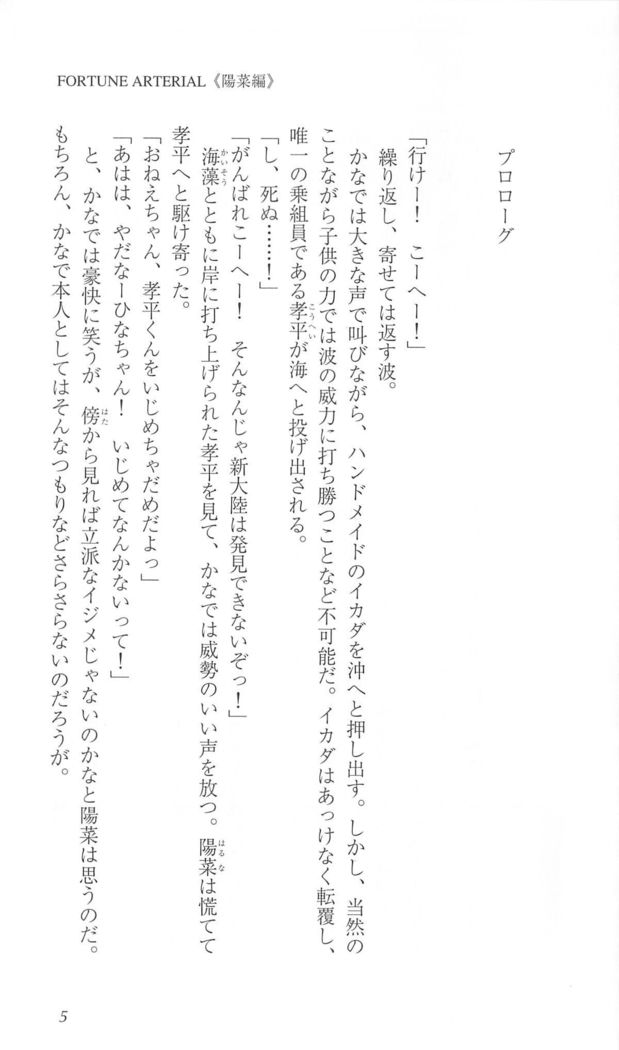 FORTUNE ARTERIAL《陽菜編》
プロローグ
「行けー！　こーへー！」
繰り返し、寄せては返す波。
かなでは大きな声で叫びながら、ハンドメイドのイカダを沖へと押し出す。しかし、当然の
ことながら子供の力では波の威力に打ち勝つことなど不可能だ。イカダはあっけなく転覆し、
唯一の乗組員である孝平が海へと投げ出される。
「し、死ぬ……！」
「がんばれこーへー！　そんなんじゃ新大陸は発見できないぞっ！」
海藻とともに岸に打ち上げられた孝平を見て、かなでは威勢のいい声を放つ。陽菜は慌てて
孝平へと駆け寄った。
「おねえちゃん、孝平くんをいじめちゃだめだよっ」
「あはは、やだなーひなちゃん！　いじめてなんかないって！」
と、かなでは豪快に笑うが、傍から見れば立派なイジメじゃないのかなと陽菜は思うのだ。
もちろん、かなで本人としてはそんなつもりなどさらさらないのだろうが。
5